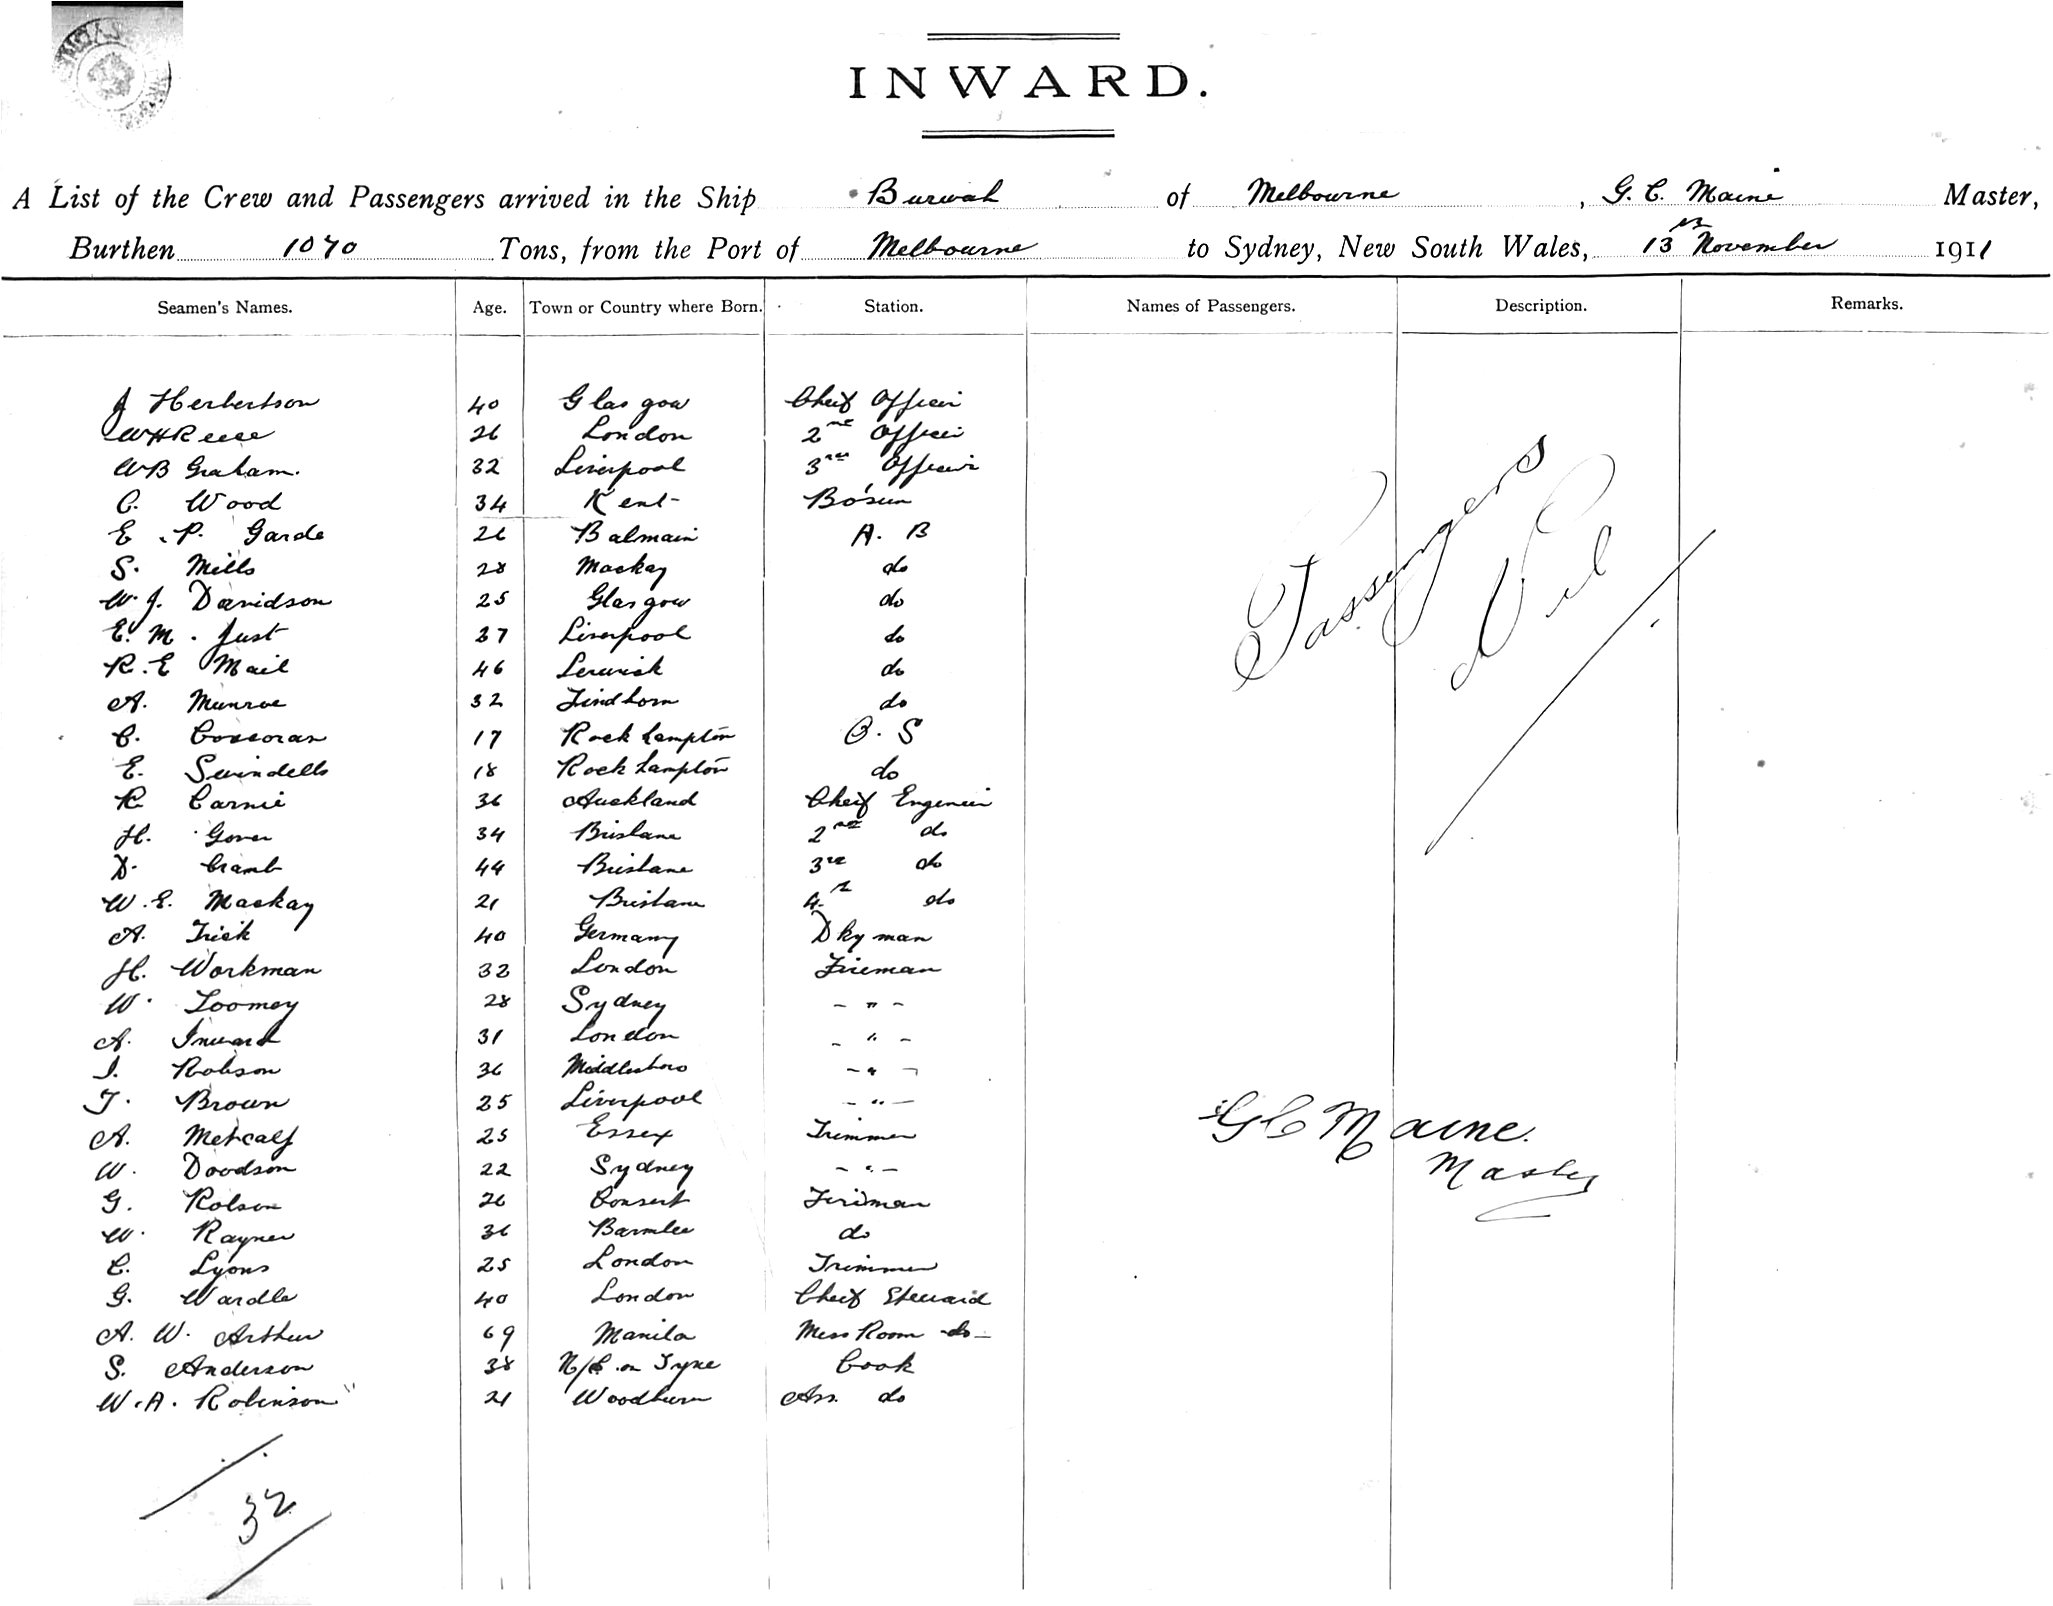 INWARD.
A List of the Crew and Passengers arrived in the Ship Burwah of Melbourne, G. C. Maine Master,
Burthen 1070 Tons, from the Port of Melbourne to Sydney, New South Wales, 13th November 1911
Seamen's Names. Age. Town or Country where Born. Station. Names of Passengers. Description. Remarks.
J Herbertson 40 Glasgow Cheif Officer
W H Reese 26 London 2nd Officer
W B Graham. 32 Liverpool 3rd Officer
C. Wood 34 Kent Bo'sun
E. P. Garde 26 Balmain A. B
S. Mills 28 Mackay do
W. J. Davidson 25 Glasgow do
E. M. Just 37 Liverpool do
R. E Mail 46 Lerwick do
A. Munroe 32 Findhorn do
C. Corcoran 17 Rockhampton O. S
E. Swindells 18 Rockhampton do
R Carnie 36 Auckland Cheif Engineer
H. Gover 34 Brisbane 2nd do
D. Cramb 44 Brisbane 3rd do
W. E. Mackay 21 Brisbane 4th do
A. Frick 40 Germany Dkyman
H. Workman 32 London Fireman
W. Toomey 28 Sydney - " -
A. Inward 31 London - " -
J. Robson 36 Middlesboro - " -
T. Brown 25 Liverpool - " -
A. Metcalf 25 Essex Trimmer
W. Doodson 22 Sydney - " -
G. Robson 26 Consett Fireman
W. Rayner 36 do
C. Lyons 25 London Trimmer
G. Wardle 40 London Cheif Steward
A. W. Arthur 69 Manila Mess Room -do-
S. Anderson 38 N/C on Tyne Cook
W. A. Robinson 21 Woodburn Ass. do
32
Passengers
Nil
G C Maine.
Master